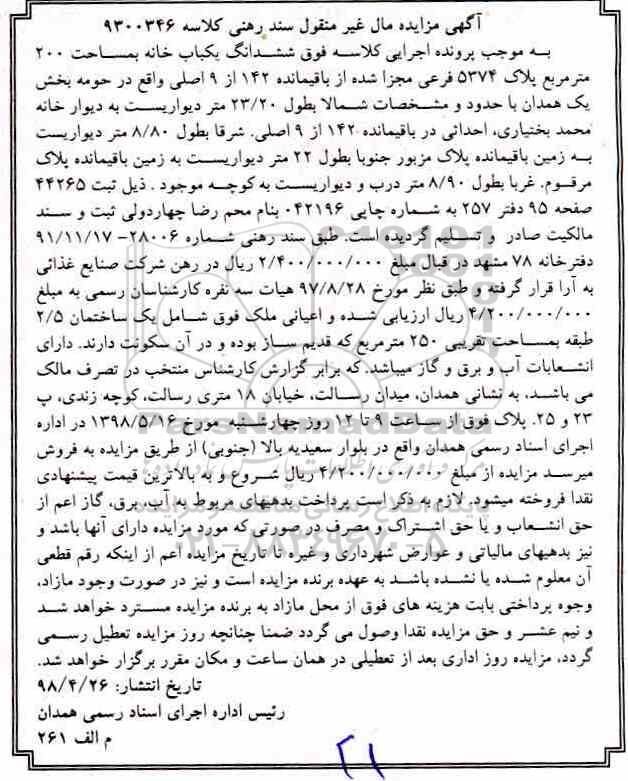 آگهی مزایده مال غیر منقول سند رهنی کلاسه ۹۳۰۰۳۴۶
به موجب پرونده اجرایی کلاسه فوق ششدانگ یکباب خانه بمساحت ۲۰۰
مترمربع پلاک ۵۳۷۴ فرعی مجزا شده از باقیمانده ۱۴۲ از ۹ اصلی واقع در حومه بخش
یک همدان با حدود و مشخصات شمالا بطول ۲۳/۲۰ متر دیواریست به دیوار خانه
محمد بختیاری، احداثی در باقیمانده ۱۴۲ از ۹ اصلی. شرقا بطول ۸/۸۰ متر دیواریست
به زمین باقیمانده پلاک مزبور جنوبا بطول ۲۲ متر دیواریست به زمین باقیمانده پلاک
مرقوم. غربا بطول ۸/۹۰ متر درب و دیواریست به کوچه موجود . ذیل ثبت ۴۴۲۶۵
صفحه ۹۵ دفتر ۲۵۷ به شماره چاپی ۰۴۲۱۹۶ بنام محم رضا چهاردولی ثبت و سند
مالکیت صادر و تسلیم گردیده است. طبق سند رهنی شماره ۲۸۰۰۶- ۹۱/۱۱/۱۷
دفترخانه ۷۸ مشهد در قبال مبلغ ۲/۴۰۰/۰۰۰/۰۰۰ ریال در رهن شرکت صنایع غذائی
به آرا قرار گرفته و طبق نظر مورخ ۹۷/۸/۲۸ هیات سه نفره کارشناسان رسمی به مبلغ
۴/۲۰۰/۰۰۰/۰۰۰ ریال ارزیابی شده و اعیانی ملک فوق شامل یک ساختمان ۲/۵
طبقه بمساحت تقریبی ۲۵۰ مترمربع که قدیم ساز بوده و در آن سکونت دارند. دارای
انشعابات آب و برق و گاز میباشد. که برابر گزارش کارشناس منتخب در تصرف مالک
می باشد، به نشانی همدان، میدان رسالت، خیابان ۱۸ متری رسالت، کوچه زندی، پ
۲۳ و ۲۵. پلاک فوق از ساعت ۹ تا ۱۲ روز چهارشنبه مورخ ۱۳۹۸/۵/۱۶ در اداره
اجرای اسناد رسمی همدان واقع در بلوار سعیدیه بالا (جنوبی) از طریق مزایده به فروش
میرسد مزایده از مبلغ ۴/۲۰۰/۰۰۰/۰۰۰ ریال شروع و به بالاترین قیمت پیشنهادی
نقدا فروخته میشود. لازم به ذکر است پرداخت بدهیهای مربوط به آب، برق، گاز اعم از
حق انشعاب و یا حق اشتراک و مصرف در صورتی که مورد مزایده دارای آنها باشد و
نیز بدهیهای مالیاتی و عوارض شهرداری و غیره تا تاریخ مزایده اعم از اینکه رقم قطعی
آن معلوم شده یا نشده باشد به عهده برنده مزایده است و نیز در صورت وجود مازاد،
وجوه پرداختی بابت هزینه های فوق از محل مازاد به برنده مزایده مسترد خواهد شد
و نیم عشر و حق مزایده نقدا وصول می گردد ضمنا چنانچه روز مزایده تعطیل رسمی
گردد، مزایده روز اداری بعد از تعطیلی در همان ساعت و مکان مقرر برگزار خواهد شد.
تاریخ انتشار: ۹۸/۴/۲۶
رئیس اداره اجرای اسناد رسمی همدان
م الف ۲۶۱
۲۱
ParsNamadData
۰۲۱-۸۸۳۴۹۶۷۰-۵